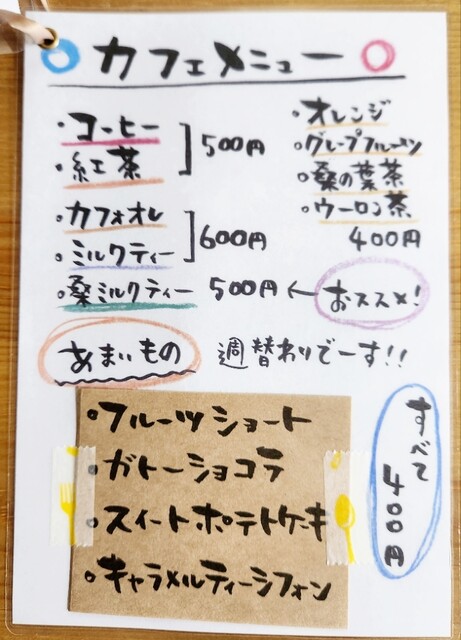 カフェメニュー
・コーヒー
・紅茶
500円
・カフェオレ
・ミルクティー
600円
・桑ミルクティー 500円 ← おススメ!
・オレンジ
・グレープフルーツ
・桑の葉茶
・ウーロン茶
400円
あまいもの 週替わりでーす!!
・フルーツショート
・ガトーショコラ
・スイートポテトケーキ
・キャラメルティーシフォン
すべて400円